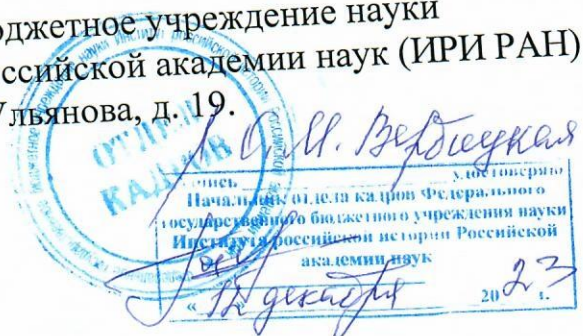 юджетное учреждение науки
оссийской академии наук (ИРИ РАН)
Ульянова, д. 19.
ОТДЕЛ
КАДРОВ
О.М. Вербицкая
пись удостоверяю
Начальник отдела кадров Федерального
государственного бюджетного учреждения науки
Института российской истории Российской
академии наук
« 12 декабря 2023 г.